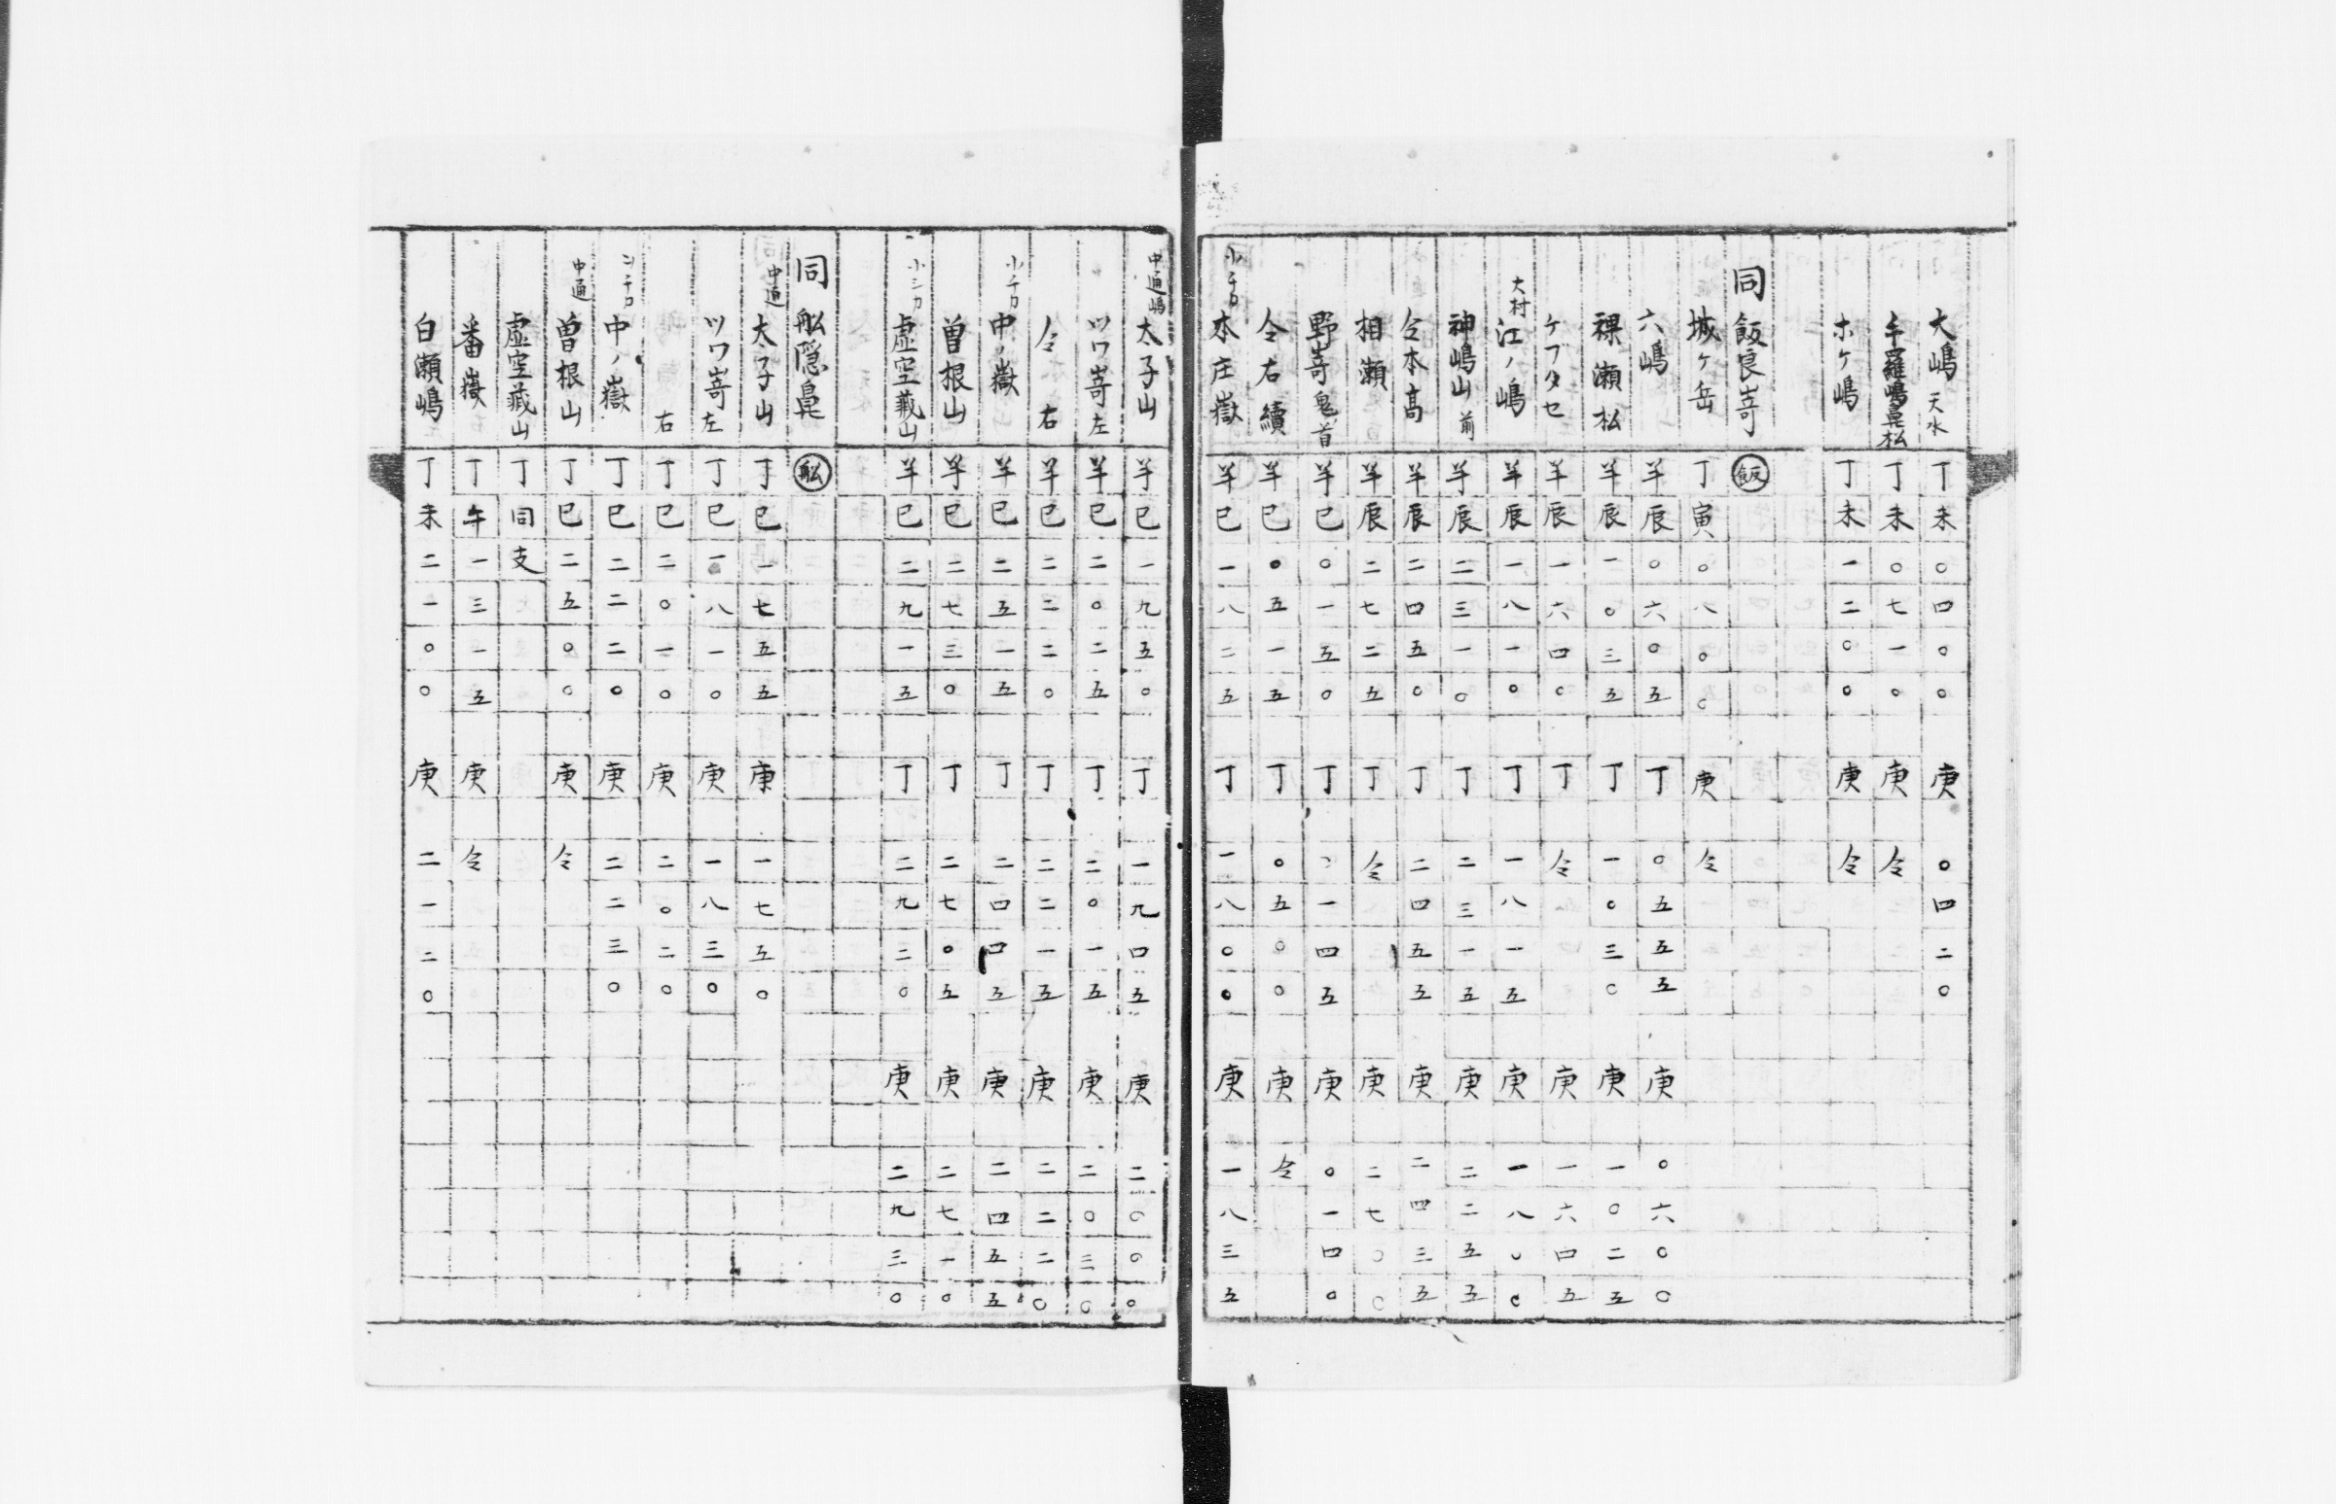 大嶋 天水 丁未 〇四〇〇 庚 〇四二〇
羅嶋 丁未 〇七一〇 庚 仝
ホケ嶋 丁未 一二〇〇 庚 仝
同 飯良嵜 飯
城ケ岳 丁寅 〇八〇〇 庚 仝
六嶋 羊辰 〇六〇五 丁 〇五五五 庚 〇六〇〇
裸瀬松 羊辰 一〇三五 丁 一〇三〇 庚 一〇二五
ケブタセ 羊辰 一六四〇 丁 仝 庚 一六四五
大村 江ノ嶋 羊辰 一八一〇 丁 一八一五 庚 一八〇〇
神嶋山 前 羊辰 二三一〇 丁 二三一五 庚 二二五五
仝本高 羊辰 二四五〇 丁 二四五五 庚 二四三五
相瀬 羊辰 二七二五 丁 仝 庚 二七〇〇
野嵜鬼首 羊巳 〇一五〇 丁 〇一四五 庚 〇一四〇
仝右續 羊巳 〇五一五 丁 〇五〇〇 庚 仝
小チカ 本庄嶽 羊巳 一八二五 丁 一八〇〇 庚 一八三五
中通嶋 太子山 羊巳 一九五〇 丁 一九四五 庚 二〇〇〇
ツワ嵜 左 羊巳 二〇二五 丁 二〇一五 庚 二〇三〇
仝 右 羊巳 二二二〇 丁 二二一五 庚 二二二〇
小チカ 中ノ嶽 羊巳 二五一五 丁 二四四五 庚 二四五五
曽根山 羊巳 二七三〇 丁 二七〇五 庚 二七一〇
虚空蔵山 羊巳 二九一五 丁 二九二〇 庚 二九三〇
同 舩隠鼻 舩
中通 太子山 丁巳 一七五五 庚 一七五〇
ツワ嵜 左 丁巳 一八一〇 庚 一八三〇
右 丁巳 二〇一〇 庚 二〇二〇
中ノ嶽 丁巳 二二二〇 庚 二二三〇
中通 曽根山 丁巳 二五〇〇 庚 仝
虚空蔵山 丁同支
番嶽 丁午 一三一五 庚 仝
白瀬嶋 丁未 二一〇〇 庚 二一二〇